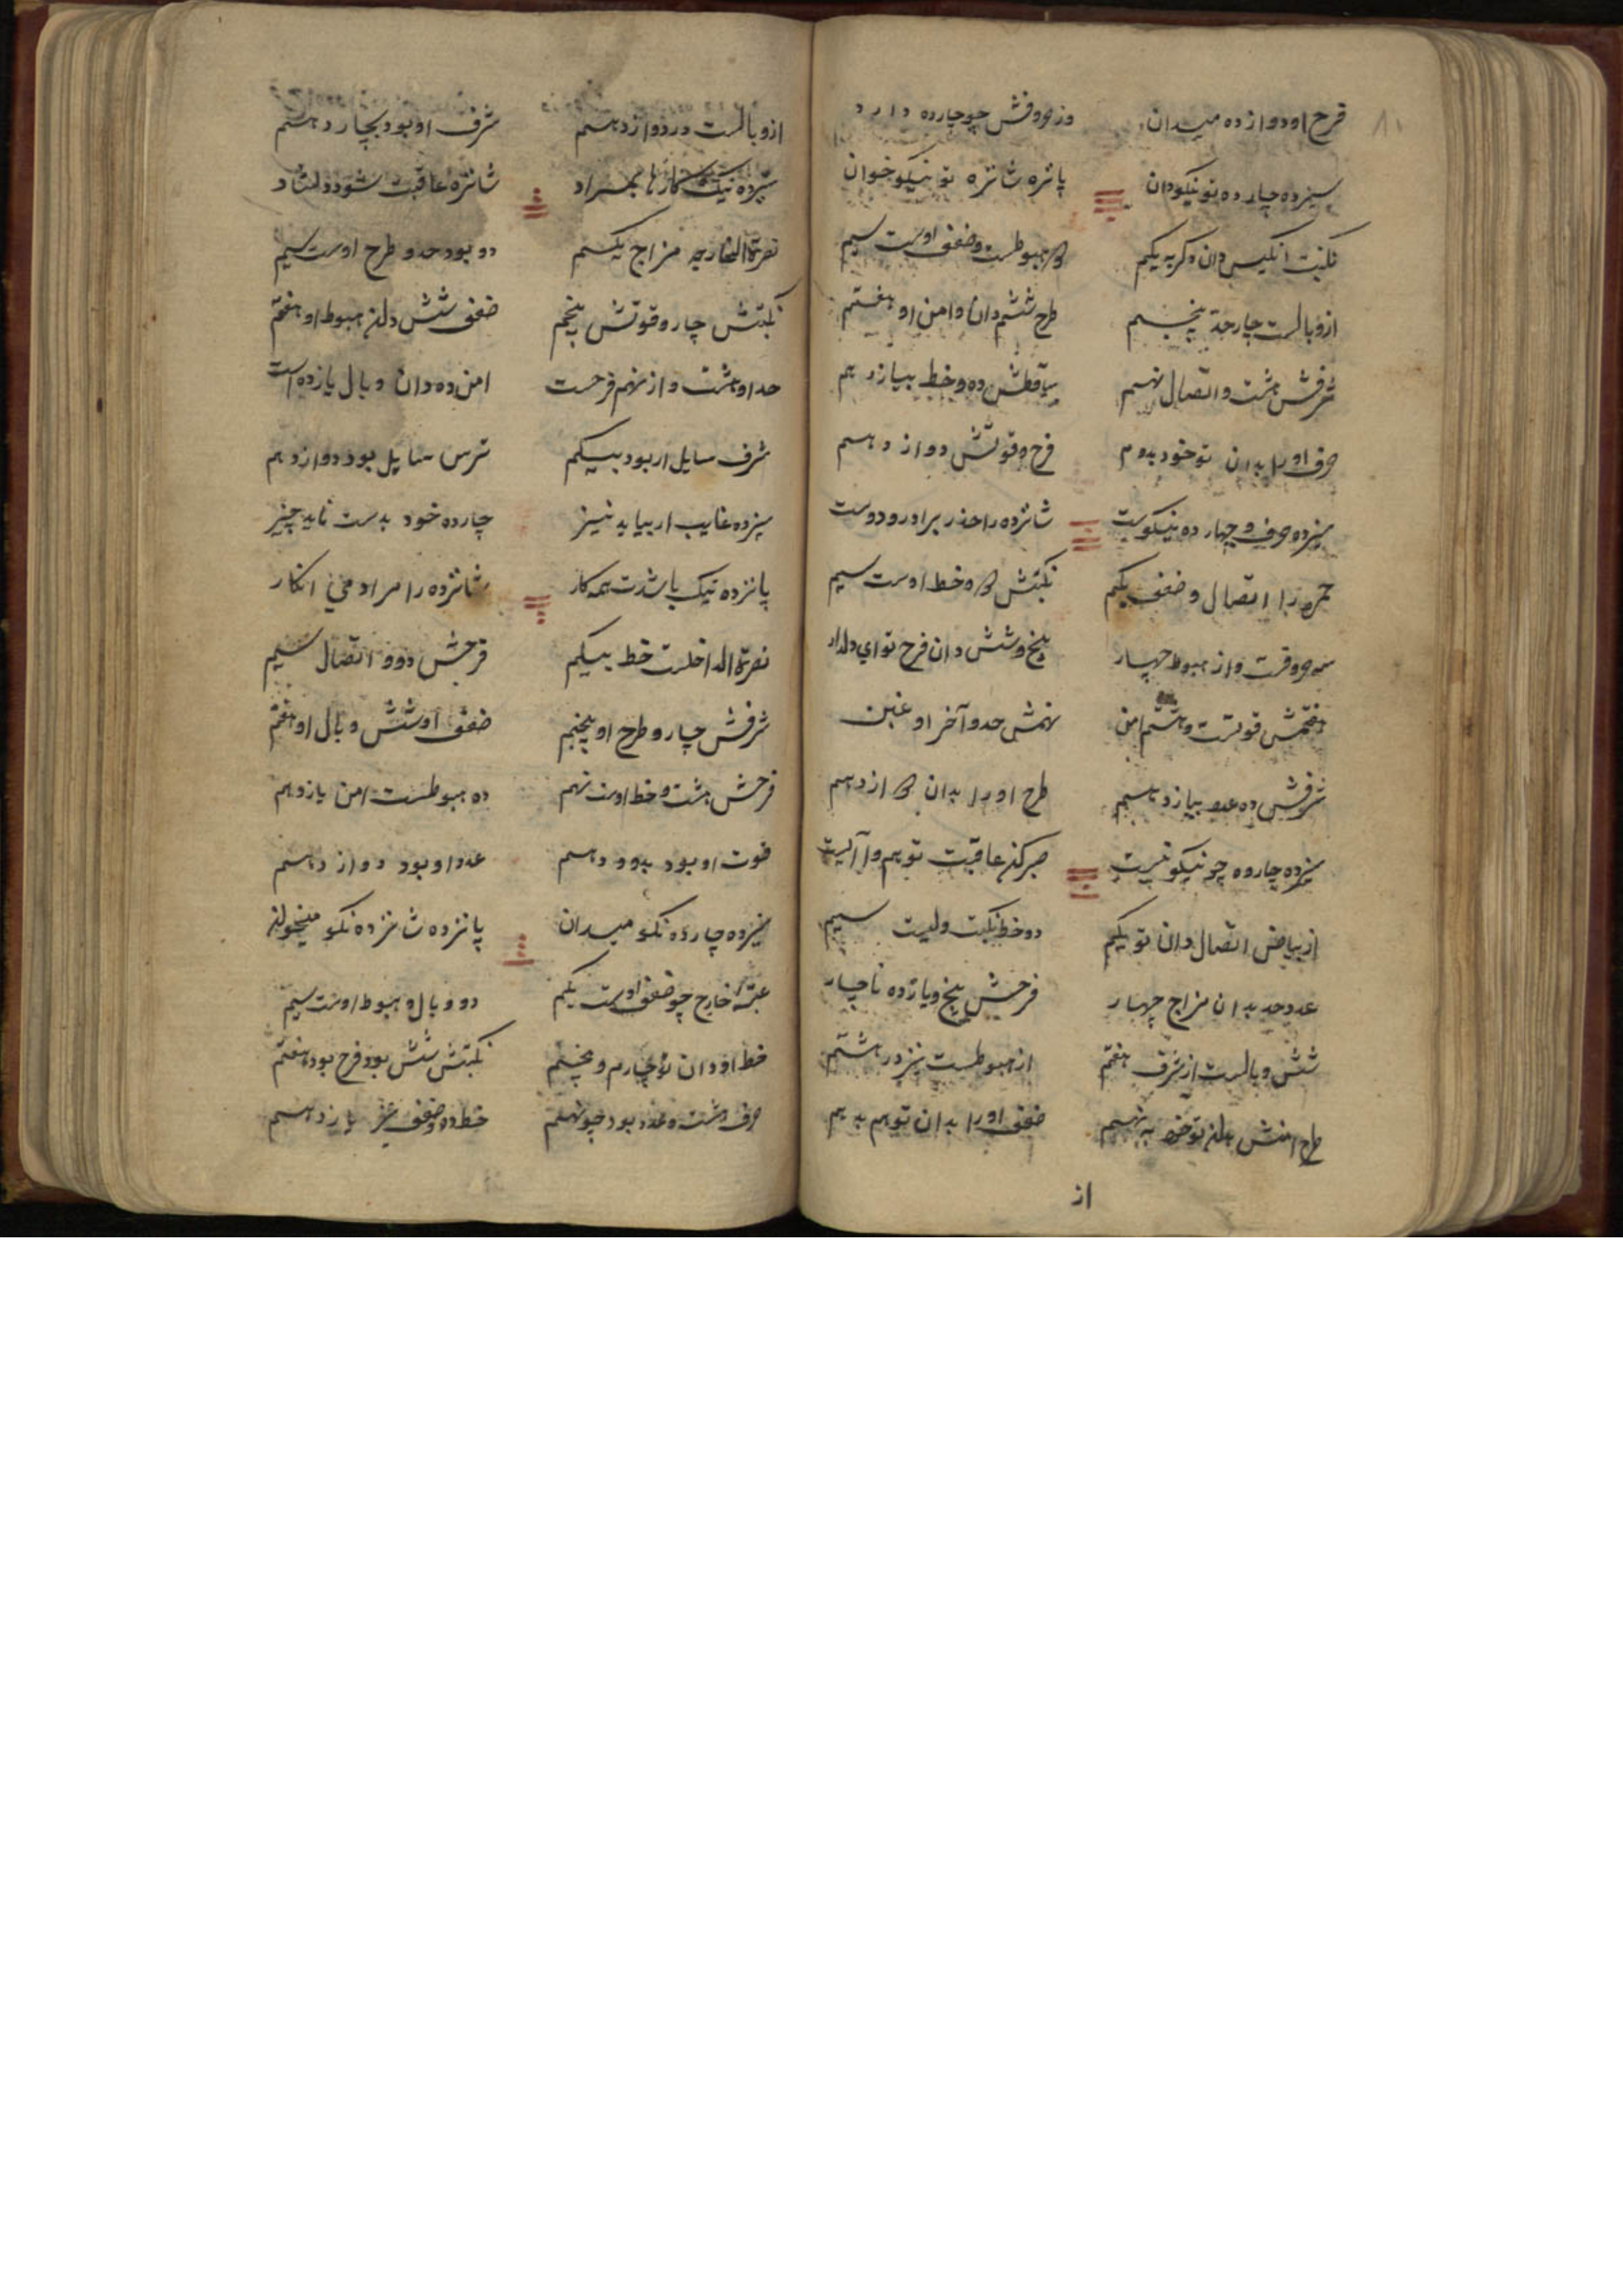 فرح او دوازده میدان وز حروفش چو چارده دارد
سیزده چارده تو نیکو دان پانزه شانزه تو نیکو خوان
نکبت انکیس دان دکر به یکم هبوطست و ضعف اوست سیم
ازو بالست چار حد پنجم طرح ششم دان و امن او هفتم
شرفش هشت و اتصال نهم ده و خط بیازدهم
حرف او را بدان تو خود بدوم فرح و قوتش دوازدهم
سیزده حرف و چهارده نیکوست شانزده را حذر برادر و دوست
حمره را اتصال و ضعف یکم نکبتش و خط اوست سیم
سه حروفست و از هبوط چهار پنج و شش دان فرح تو ای دلدار
هفتمش قوتست و هشتم امن نهمش حد و آخر او غبن
شرفش ده عدد بیازدهم طرح او را بدان ازدهم
سیزده چارده چو نیکو نیست صبر کن عاقبت تو هم
از بیاض اتصال دان تو یکم دو خط نکبت ولیست سیم
عدد حد بدان مزاج چهار فرحش پنج و یازده ناچار
شش و بالست از شرف هفتم از هبوطست نیز در هشتم
طرح امنش بدان تو خود به نهم ضعف او را بدان تو هم بدهم
از
ازو بالست در دوازدهم شرف او بود بچاردهم
سیزده نیک کارها بمراد شانزه عاقبت شود دلشاد
نصرة الخارجه مزاج یکم دو بود حد و طرح اوست سیم
نکبتش چار و قوتش پنجم ضعف شش دان هبوط او هفتم
حد او هشت و از نهم فرحست امن ده دان و بال یازده است
شرف سایل ار بود بیکم ترس سایل بود دوازدهم
سیزده غایب ار بیاید نیز چارده خود بدست ناید چیز
پانزده نیک باشدت همه کار شانزده را مراد می انکار
نصرة الداخلست خط بیکم فرحش دو و اتصال سیم
شرفش چار و طرح او پنجم ضعف او شش و بال او هفتم
فرحش هشت و خط اوست نهم ده هبوطست امن یازدهم
قوت او بود بدودهم عدد او بود دوازدهم
سیزده چارده نکو میدان پانزده شانزده نکو میخوان
عتبه خارج چو ضعف اوست یکم دو و بال و هبوط اوست سیم
خط او دان تو چارم و پنجم نکبتش شش بود فرح بود هفتم
حرف هشت و عدد بود چو نهم خط ده و ضعف یازدهم